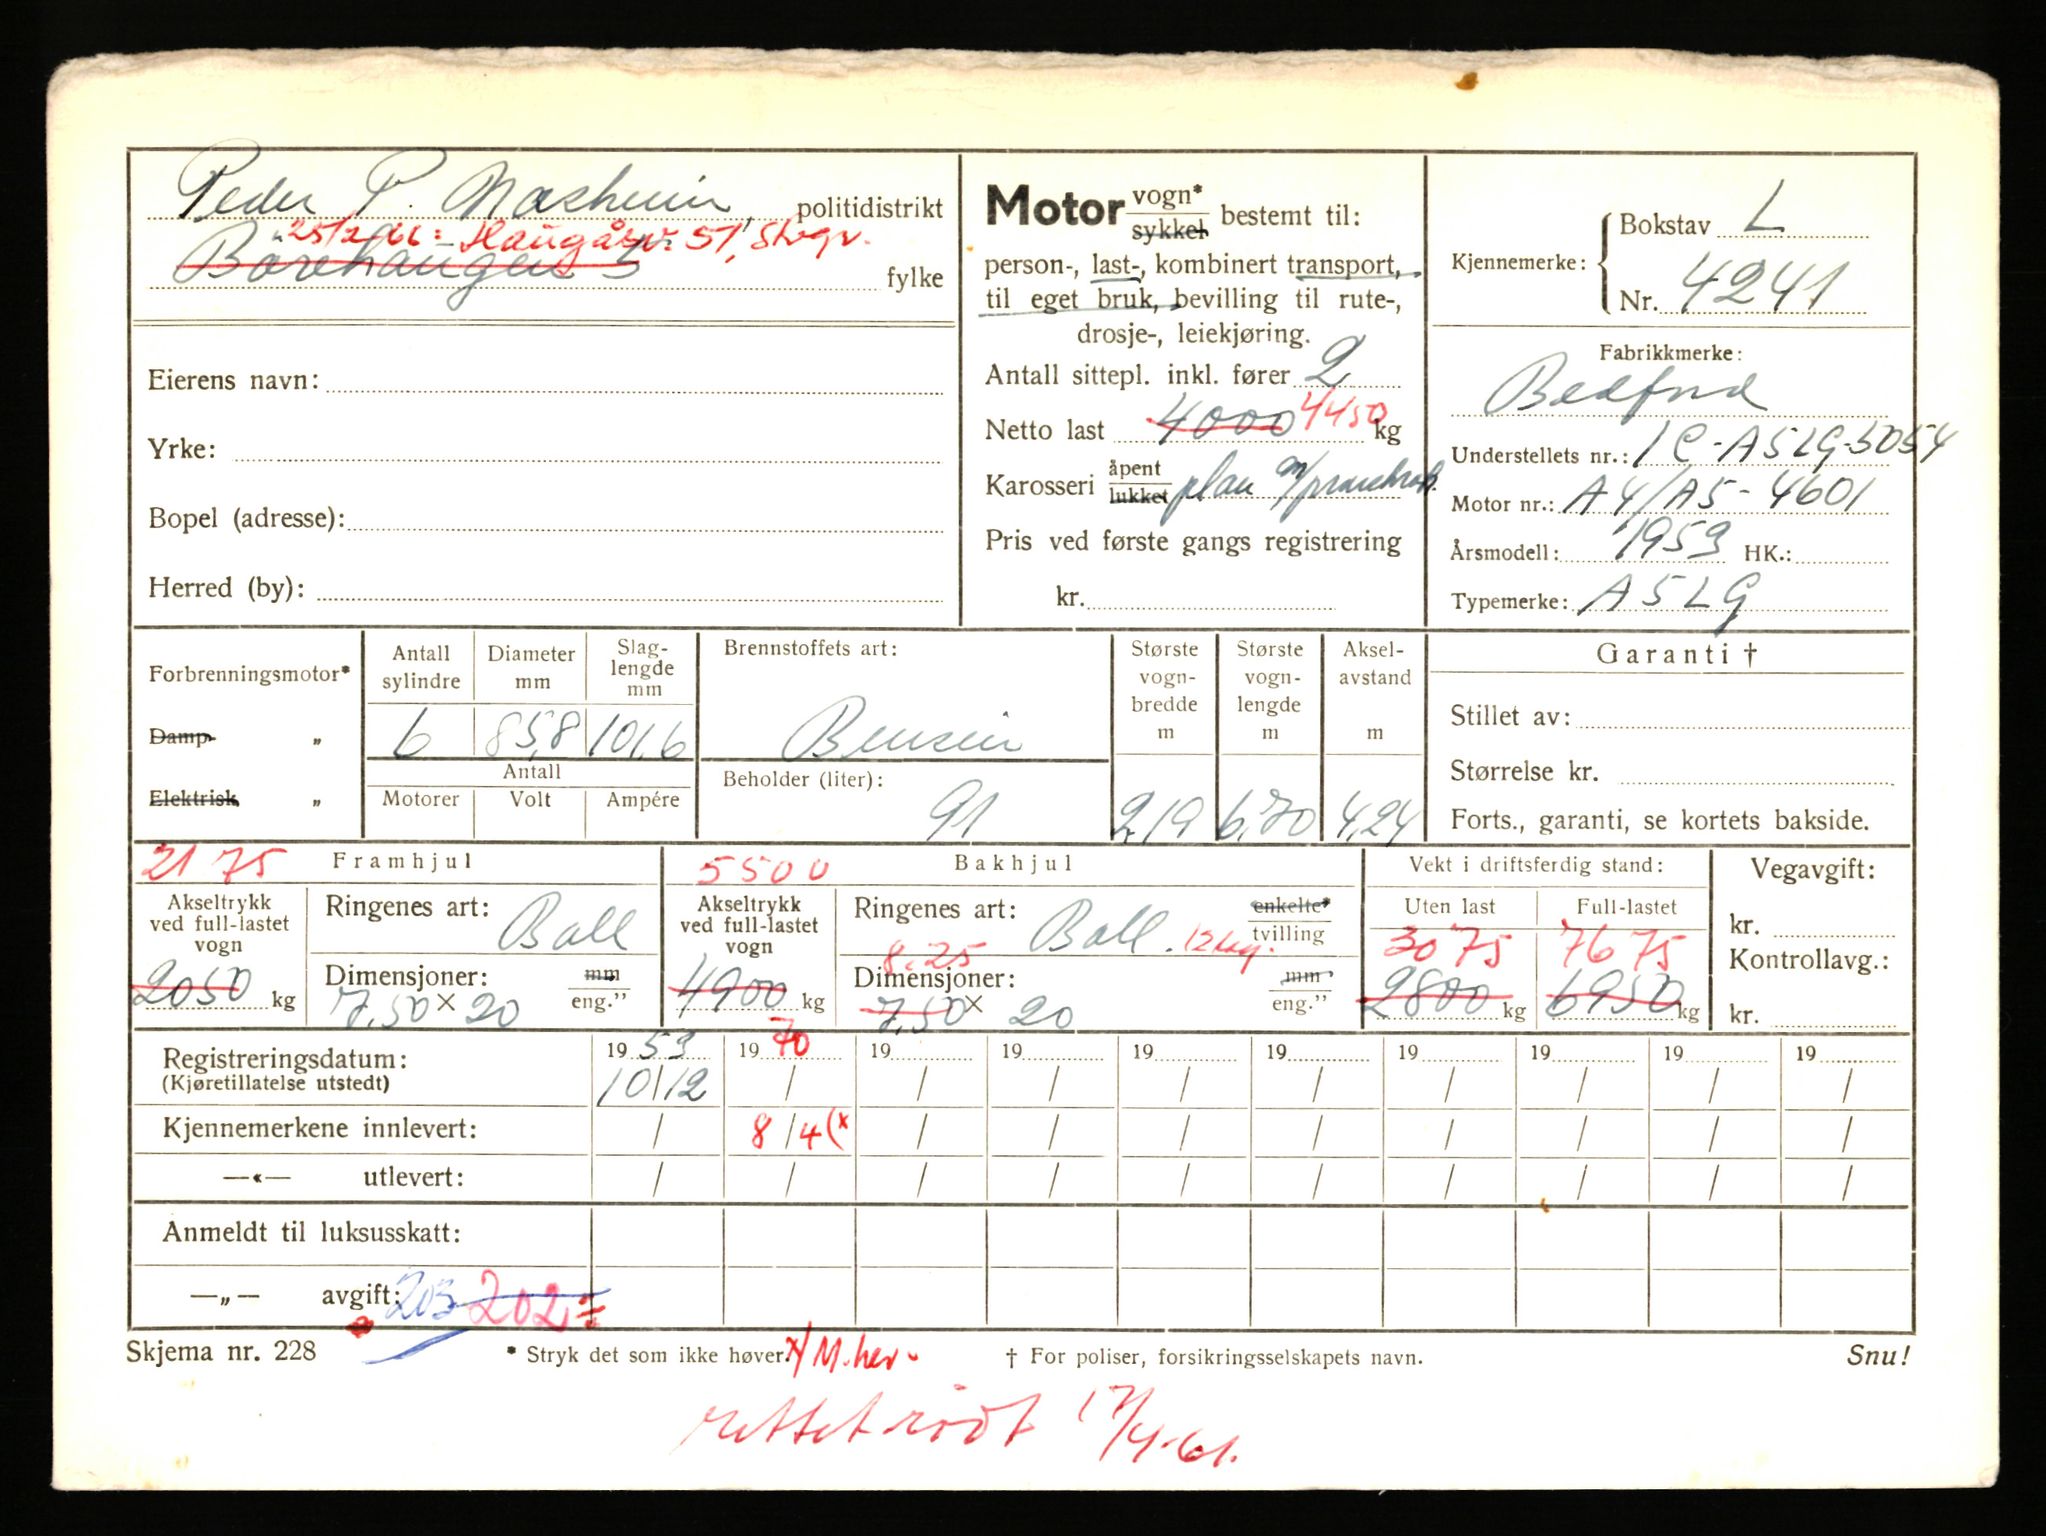 Peder P. Næsheim, politidistrikt
25/2-66: Haugåsv. 51, Stvgr.
Börehaugen 5 fylke
Eierens navn:
Yrke:
Bopel (adresse):
Herred (by):
Motor vogn* sykkel bestemt til:
person-, last-, kombinert transport,
til eget bruk, bevilling til rute-,
drosje-, leiekjøring.
Antall sittepl. inkl. fører 2
Netto last 4000 4450 kg
Karosseri åpent lukket plan m/
Pris ved første gangs registrering
kr.
Kjennemerke: Bokstav L
Nr. 4241
Fabrikkmerke:
Bedford
Understellets nr.: 1C-A5LG-5054
Motor nr.: A4/A5-4601
Årsmodell: 1953 HK.:
Typemerke: A5LG
Forbrenningsmotor*
Damp „
Elektrisk „
Antall sylindre Diameter mm Slag-lengde mm
6 85,8 101,6
Antall
Motorer Volt Ampére
Brennstoffets art:
Bensin
Beholder (liter):
91
Største vogn-bredde m Største vogn-lengde m Aksel-avstand m
2,19 6,70 4,24
Garanti †
Stillet av:
Størrelse kr.
Forts., garanti, se kortets bakside.
2175 Framhjul
Akseltrykk ved full-lastet vogn
2050 kg
Ringenes art: Ball
Dimensjoner: mm
7,50 x 20 eng.”
5500 Bakhjul
Akseltrykk ved full-lastet vogn
4900 kg
Ringenes art: Ball. 12 lag. enkelte* tvilling
8.25
Dimensjoner: mm
7,50 x 20 eng.”
Vekt i driftsferdig stand:
Uten last Full-lastet
3075 7675
2800 kg 6950 kg
Vegavgift:
kr.
Kontrollavg.:
kr.
Registreringsdatum: 19 53 19 70 19 19 19 19 19 19 19 19
(Kjøretillatelse utstedt) 10/12 / / / / / / / / /
Kjennemerkene innlevert: / 8/4 (x / / / / / / / /
—«— utlevert: / / / / / / / / / /
Anmeldt til luksusskatt:
—„— avgift: 203 202
Skjema nr. 228 * Stryk det som ikke høver. x/ M.hev. † For poliser, forsikringsselskapets navn. Snu!
rettet rödt 17/4-61.